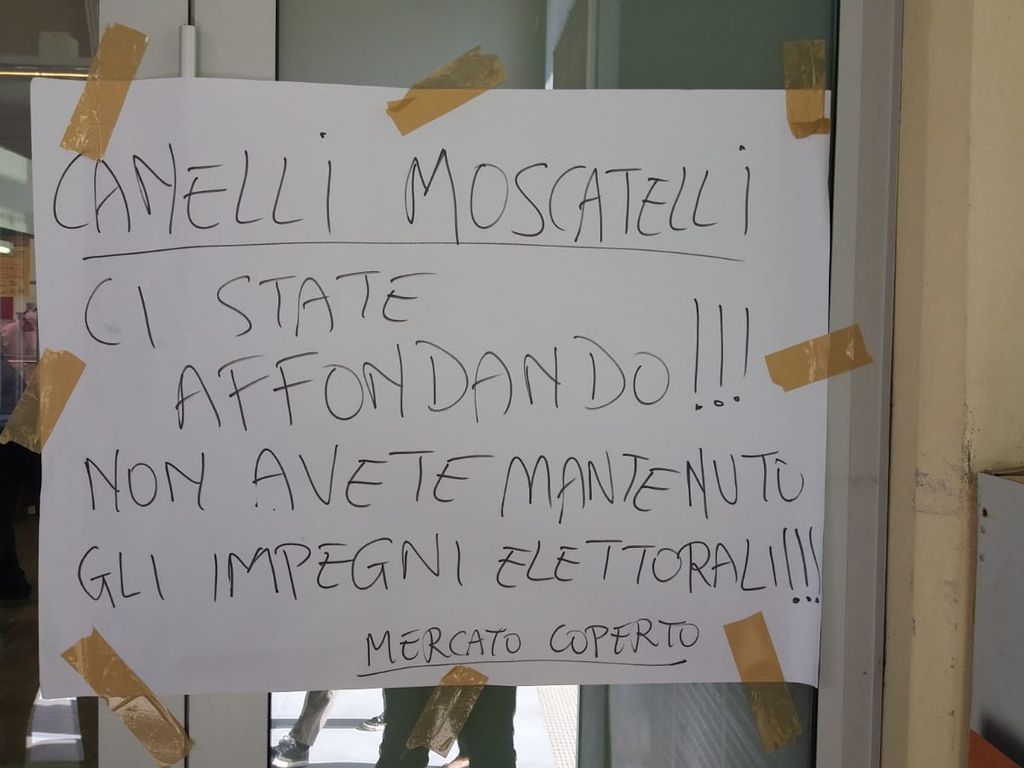 CANELLI MOSCATELLI
CI STATE
AFFONDANDO!!!
NON AVETE MANTENUTO
GLI IMPEGNI ELETTORALI!!!
MERCATO COPERTO